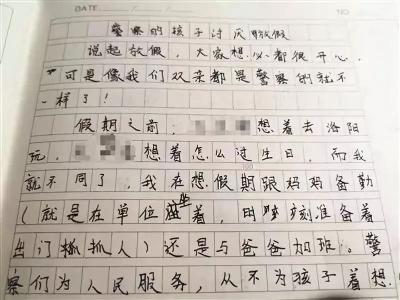 DATE
NO
警察的孩子讨厌放假
说起放假，大家想必都很开心，
可是像我们双亲都是警察的就不
一样了！
假期之前，想着去洛阳
玩，想着怎么过生日，而我
就不同了，我在想假期跟妈妈备勤
（就是在单位坐着，时刻准备着
出门抓人）还是与爸爸加班。警
察们为人民服务，从不为孩子着想